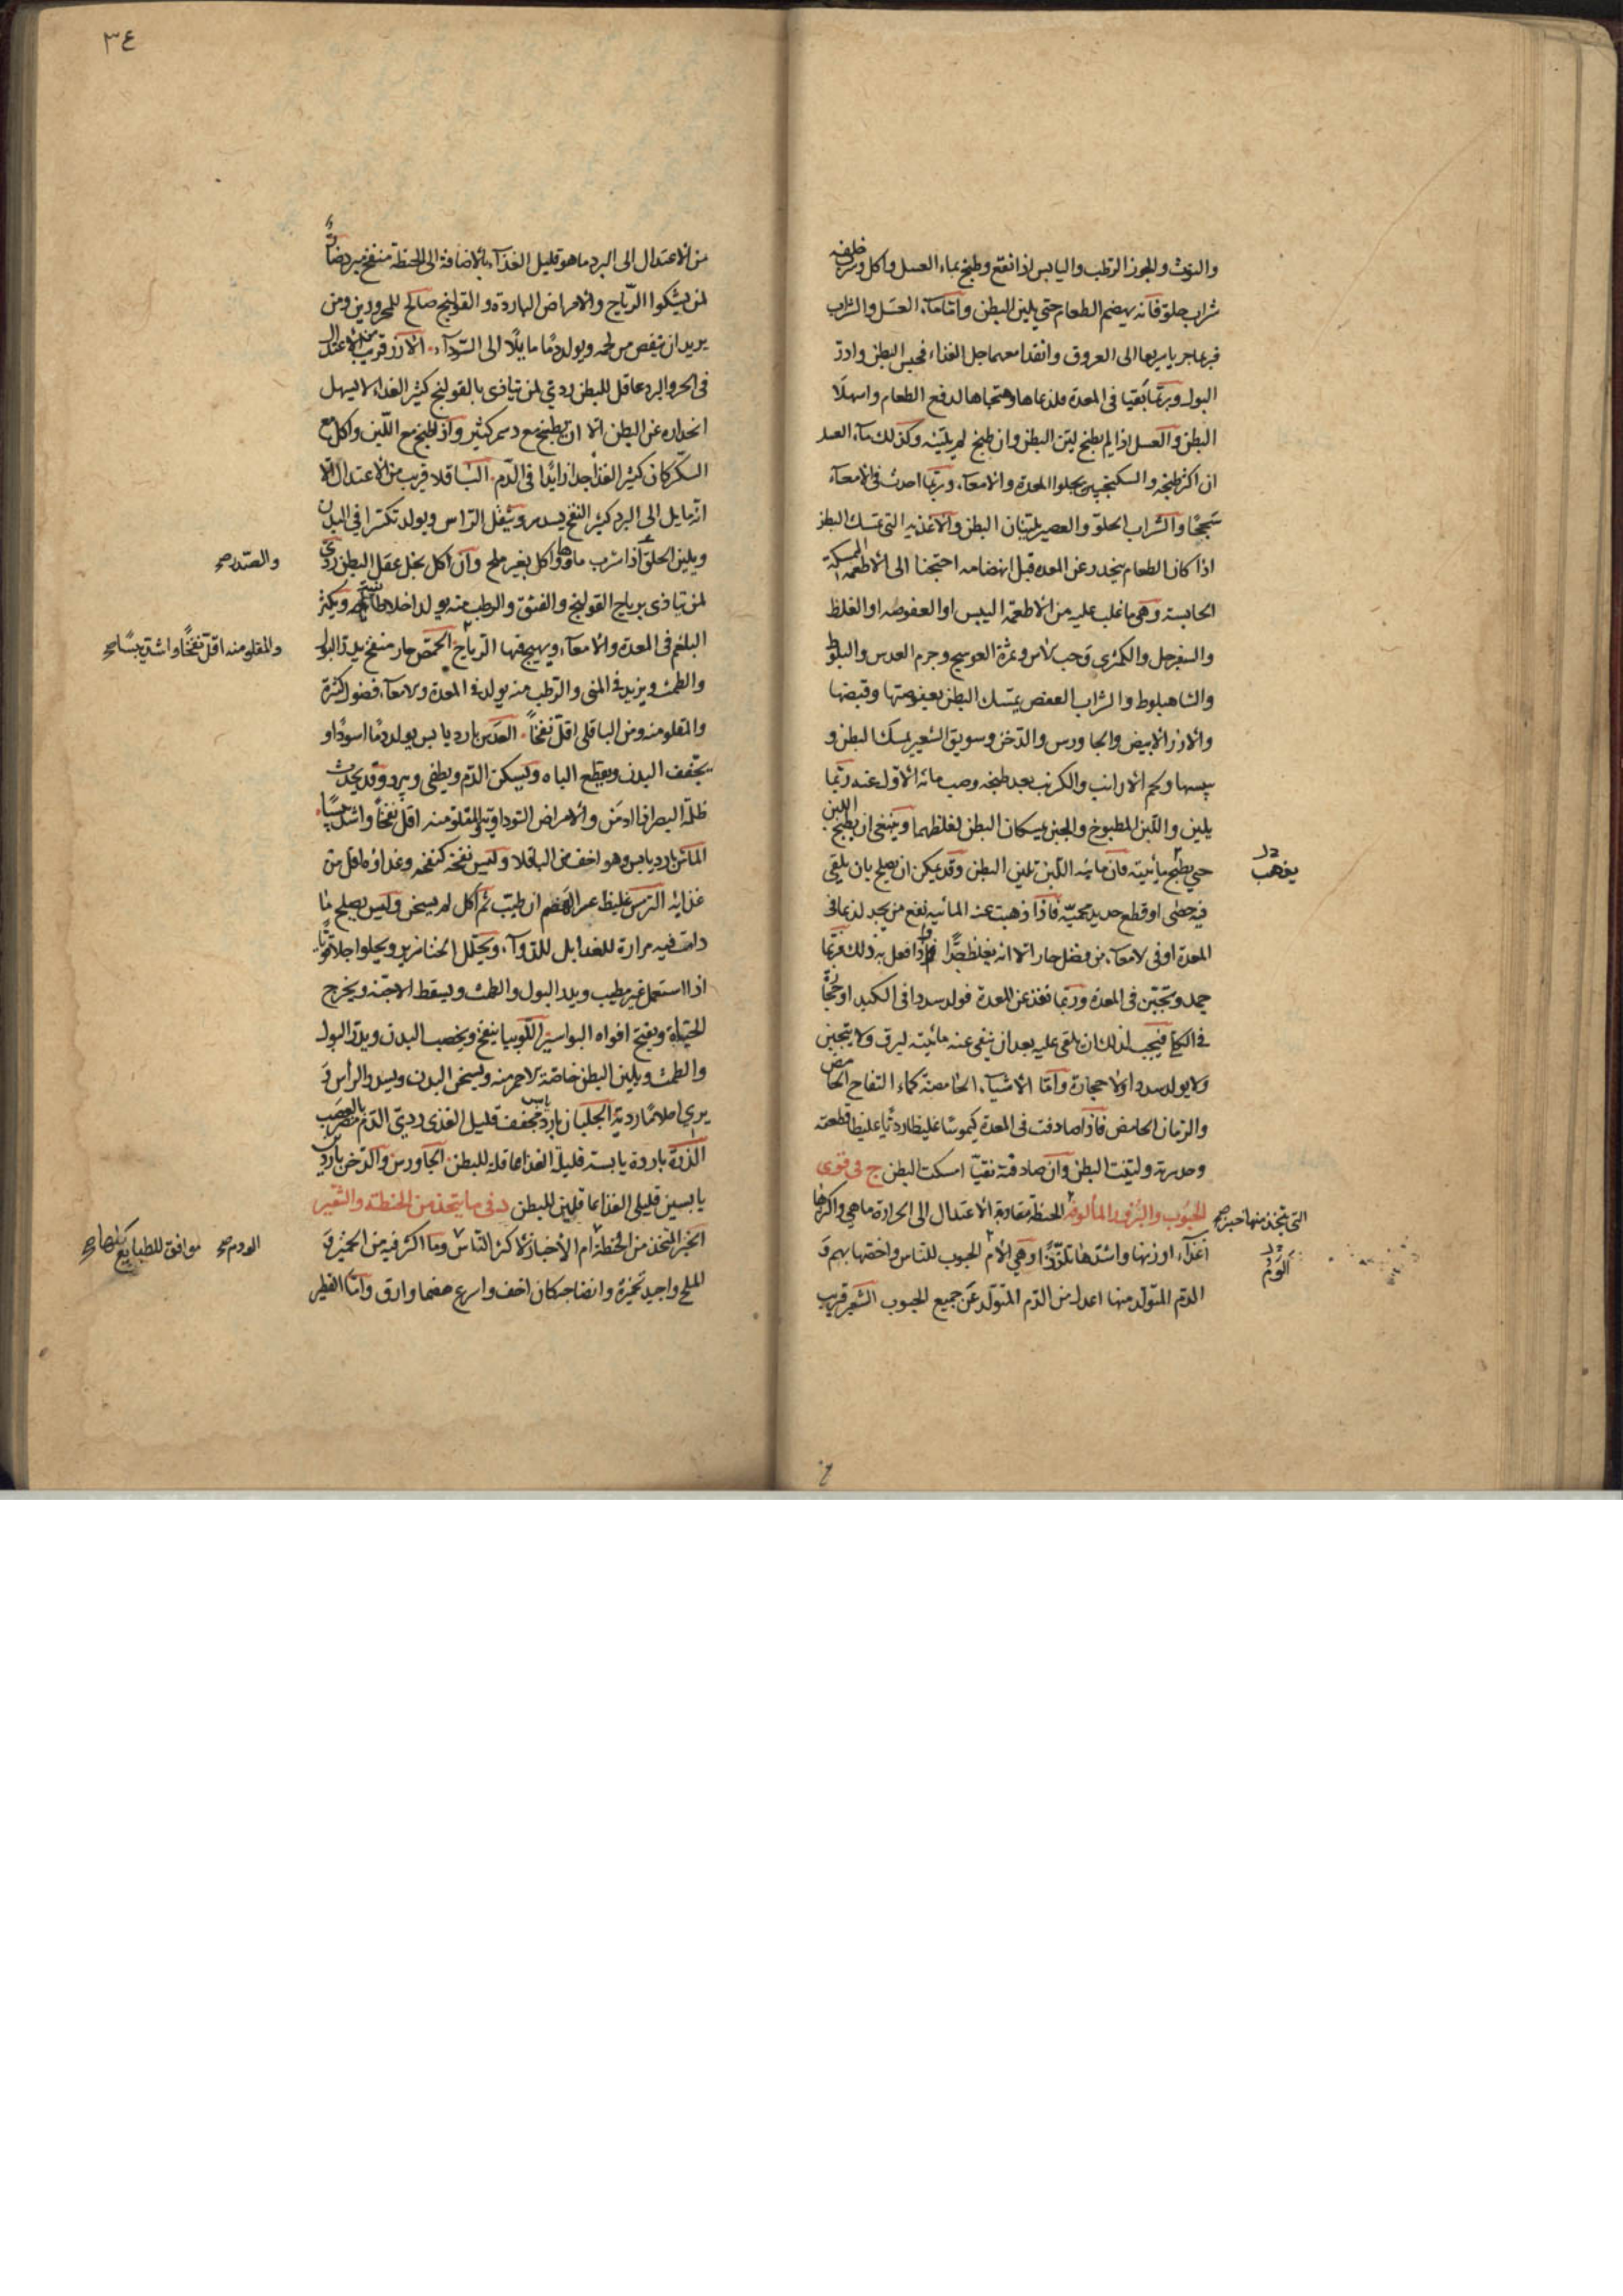 والتوث والجوز الرطب واليابس اذا نقع وطبخ بماء العسل واكل وشرب خلفه
شراب حلو فانه يهضم الطعام حتى يلين البطن واما ماء العسل والشراب
فربما جريا سريعا الى العروق وانفذا معهما جل الغذاء فحبس البطن وادرّ
البول وربما بقيا فى المعدة فلذعاها وهيجاها لدفع الطعام واسهلا
البطن والعسل اذا لم يطبخ لين البطن وان طبخ لم يلينه وكذلك ماء العسل
ان اكثر طبخه والسكنجبين يجلوا المعدة والامعاء وربما احدث فى الامعاء
سحجًا والشراب الحلو والعصير يلينان البطن والاغذية التى تمسك البطن
اذا كان الطعام ينحدر عن المعده قبل انهضامه احتجنا الى الاطعمه الممسكة
الحابسة وهى ما غلب عليه من الاطعمة اليبس او العفوصه او الغلظ
والسفرجل والكمثرى وحب الاس وثمرة العوسج وجرم العدس والبلوط
والشاهبلوط والشراب العفص يمسك البطن بعفوصتها وقبضها
والارز الابيض والجاورس والدخن وسويق الشعير يمسك البطن و
يبسها ولحم الارانب والكرنب بعد طبخه وصب مائه الاول عنه ربما
يلين واللبن المطبوخ والجبن يمسكان البطن لغلظهما وينبغى ان يطبخ اللبن
حتى يطبخ مائيته فان مائية اللبن تلين البطن وقد يمكن ان يصلح بان يلقى
يذهب
فيه حصى او قطع حديد محميّة فاذا ذهبت عنه المائيه نفع من يجد لذعا فى
المعدة او فى الامعاء من فضل حار الا انه يغلظ جدًّا فاذا فعل به ذلك فربما
جمد وتجبن فى المعدة وربما نفذ عن المعدة فولد سددا فى الكبد او حجارة
فى الكلى فيجب لذلك ان يلقى عليه بعد ان ينفى عنه مائيته ليرق ولا يتجبن
ولا يولد سددا ولا حجارة واما الاشياء الحامضة كماء التفاح الحامض
والرمان الحامض فاذا صادفت فى المعدة كيموسًا غليظا رديًا غليظا قطعته
وحدرته ولينت البطن وان صادفته نقيًا امسكت البطن ج فى قوى
الحبوب والبزور المألوفة الحنطة مقاربة الاعتدال الى الحرارة ما هى واكثرها
التى يتخذ منها خبز صح
غذاء اوزنها واشدها تلززًا وهى الام الحبوب للناس واخصها بهم و
الوزم
الدم المتولد منها اعدل من الدم المتولد عن جميع الحبوب الشعير قريب
٣٤
من الاعتدال الى البرد ما هو قليل الغذاء بالاضافة الى الحنطة منفخ مبرد ضارّ
لمن يشكوا الرياح والامراض الباردة والقولنج صالح للمحرورين ومن
يريد ان ينقص من لحمه ويولد دمًا مايلًا الى السوداء الارز قريب من الاعتدال
فى الحر والبرد عاقل للبطن ردى لمن يتاذى بالقولنج كثير الغذاء لا يسهل
انحداره عن البطن الا ان يطبخ مع دسم كثير واذا طبخ مع اللبن واكل مع
السكر كان كثير الغذا جدا زايدا فى الدم الباقلا قريب من الاعتدال الا
انه مايل الى البرد كثير النفخ يسدر ويثقل الراس ويولد تكسرا فى البدن
ويلين الحلق اذا شرب ماؤها واكل بغير ملح وان اكل بخل عقل البطن ردى
والصدر صح
لمن يتاذى برياح القولنج والفتق والرطب منه يولد اخلاطا ويكثر
البلغم فى المعدة والامعاء ويهيج فيها الرياح الحمص حار منفخ يدر البول
والمقلو منه اقل نفخًا واشد يبسًا صح
والطمث ويزيد فى المنى والرطب منه يولد فى المعدة والامعاء فضولًا كثيرة
والمقلو منه ومن الباقلى اقل نفخًا العدس بارد يابس يولد دمًا اسودًا و
يجفف البدن ويقطع الباه ويسكن الدم ويطفى ويبرد وقد يحدث
ظلمة البصر اذا ادمن والامراض السوداوية والمقلو منه اقل نفخًا واشد يبسًا
الماش بارد يابس وهو اخف من الباقلا وليس نفخه كنفخه وغذاؤه اقل من
غذايه الترمس غليظ عسر الهضم ان طيب ثم اكل لم يسخن وليس يصلح ما
دامت فيه مرارة للغذا بل للدواء ويحلل الخنازير ويجلوا جلاء قويًا
اذا استعمل غير مطيب ويدر البول والطمث ويسقط الاجنة ويخرج
الحيات ويفتح افواه البواسير اللوبيا ينفخ ويخصب البدن ويدر البول
والطمث ويلين البطن خاصة الاحمر منه ويسخن البدن ويسدر الراس و
يرى احلامًا ردية الجلبان بارد يابس مجفف قليل الغذى ردى الدم مضر بالعصب
الذرة باردة يابسة قليلة الغذا عاقلة للبطن الجاورس والدخن بارد
يابسين قليلى الغذا عاقلين للبطن د فى ما يتخذ من الحنطة والشعير
الخبز المتخذ من الحنطة ام الاخباز لاكثر الناس وما اكثر فيه من الخمير و
العدم صح موافق للطبايع كلها صح
الملح واجيد تخميره وانضاجه كان اخف واسرع هضما وارق واما الفطير